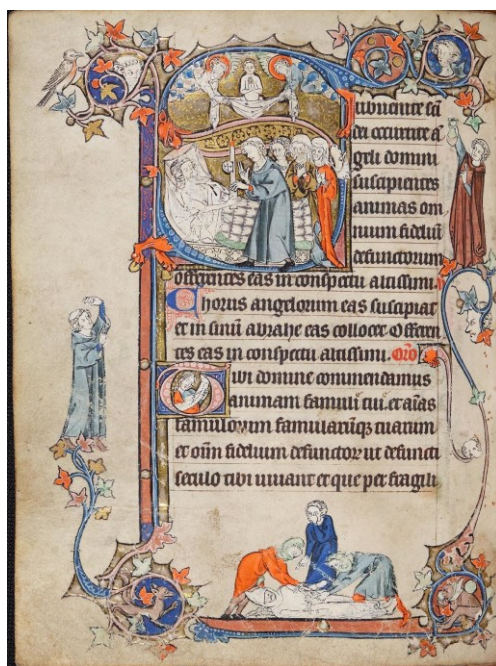 Subuenite sā
dei occurrite ā
geli domini
suscipientes
animas om
nium fideliū
defunctorum
offerentes eas in conspectu altissimi.
Chorus angelorum eas suscipiat
et in sinū abrahe eas collocet. Offeren
tes eas in conspectu altissimi. Oro
Tibi domine commendamus
animam famuli tui. et aīas
famulorum famularūq; tuarum
et om̄ fidelium defunctor ut defuncti
seculo tibi uiuant et que per fragili